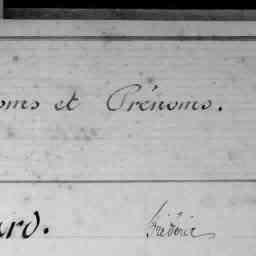 oms et Prénoms.
ard. Frédéric